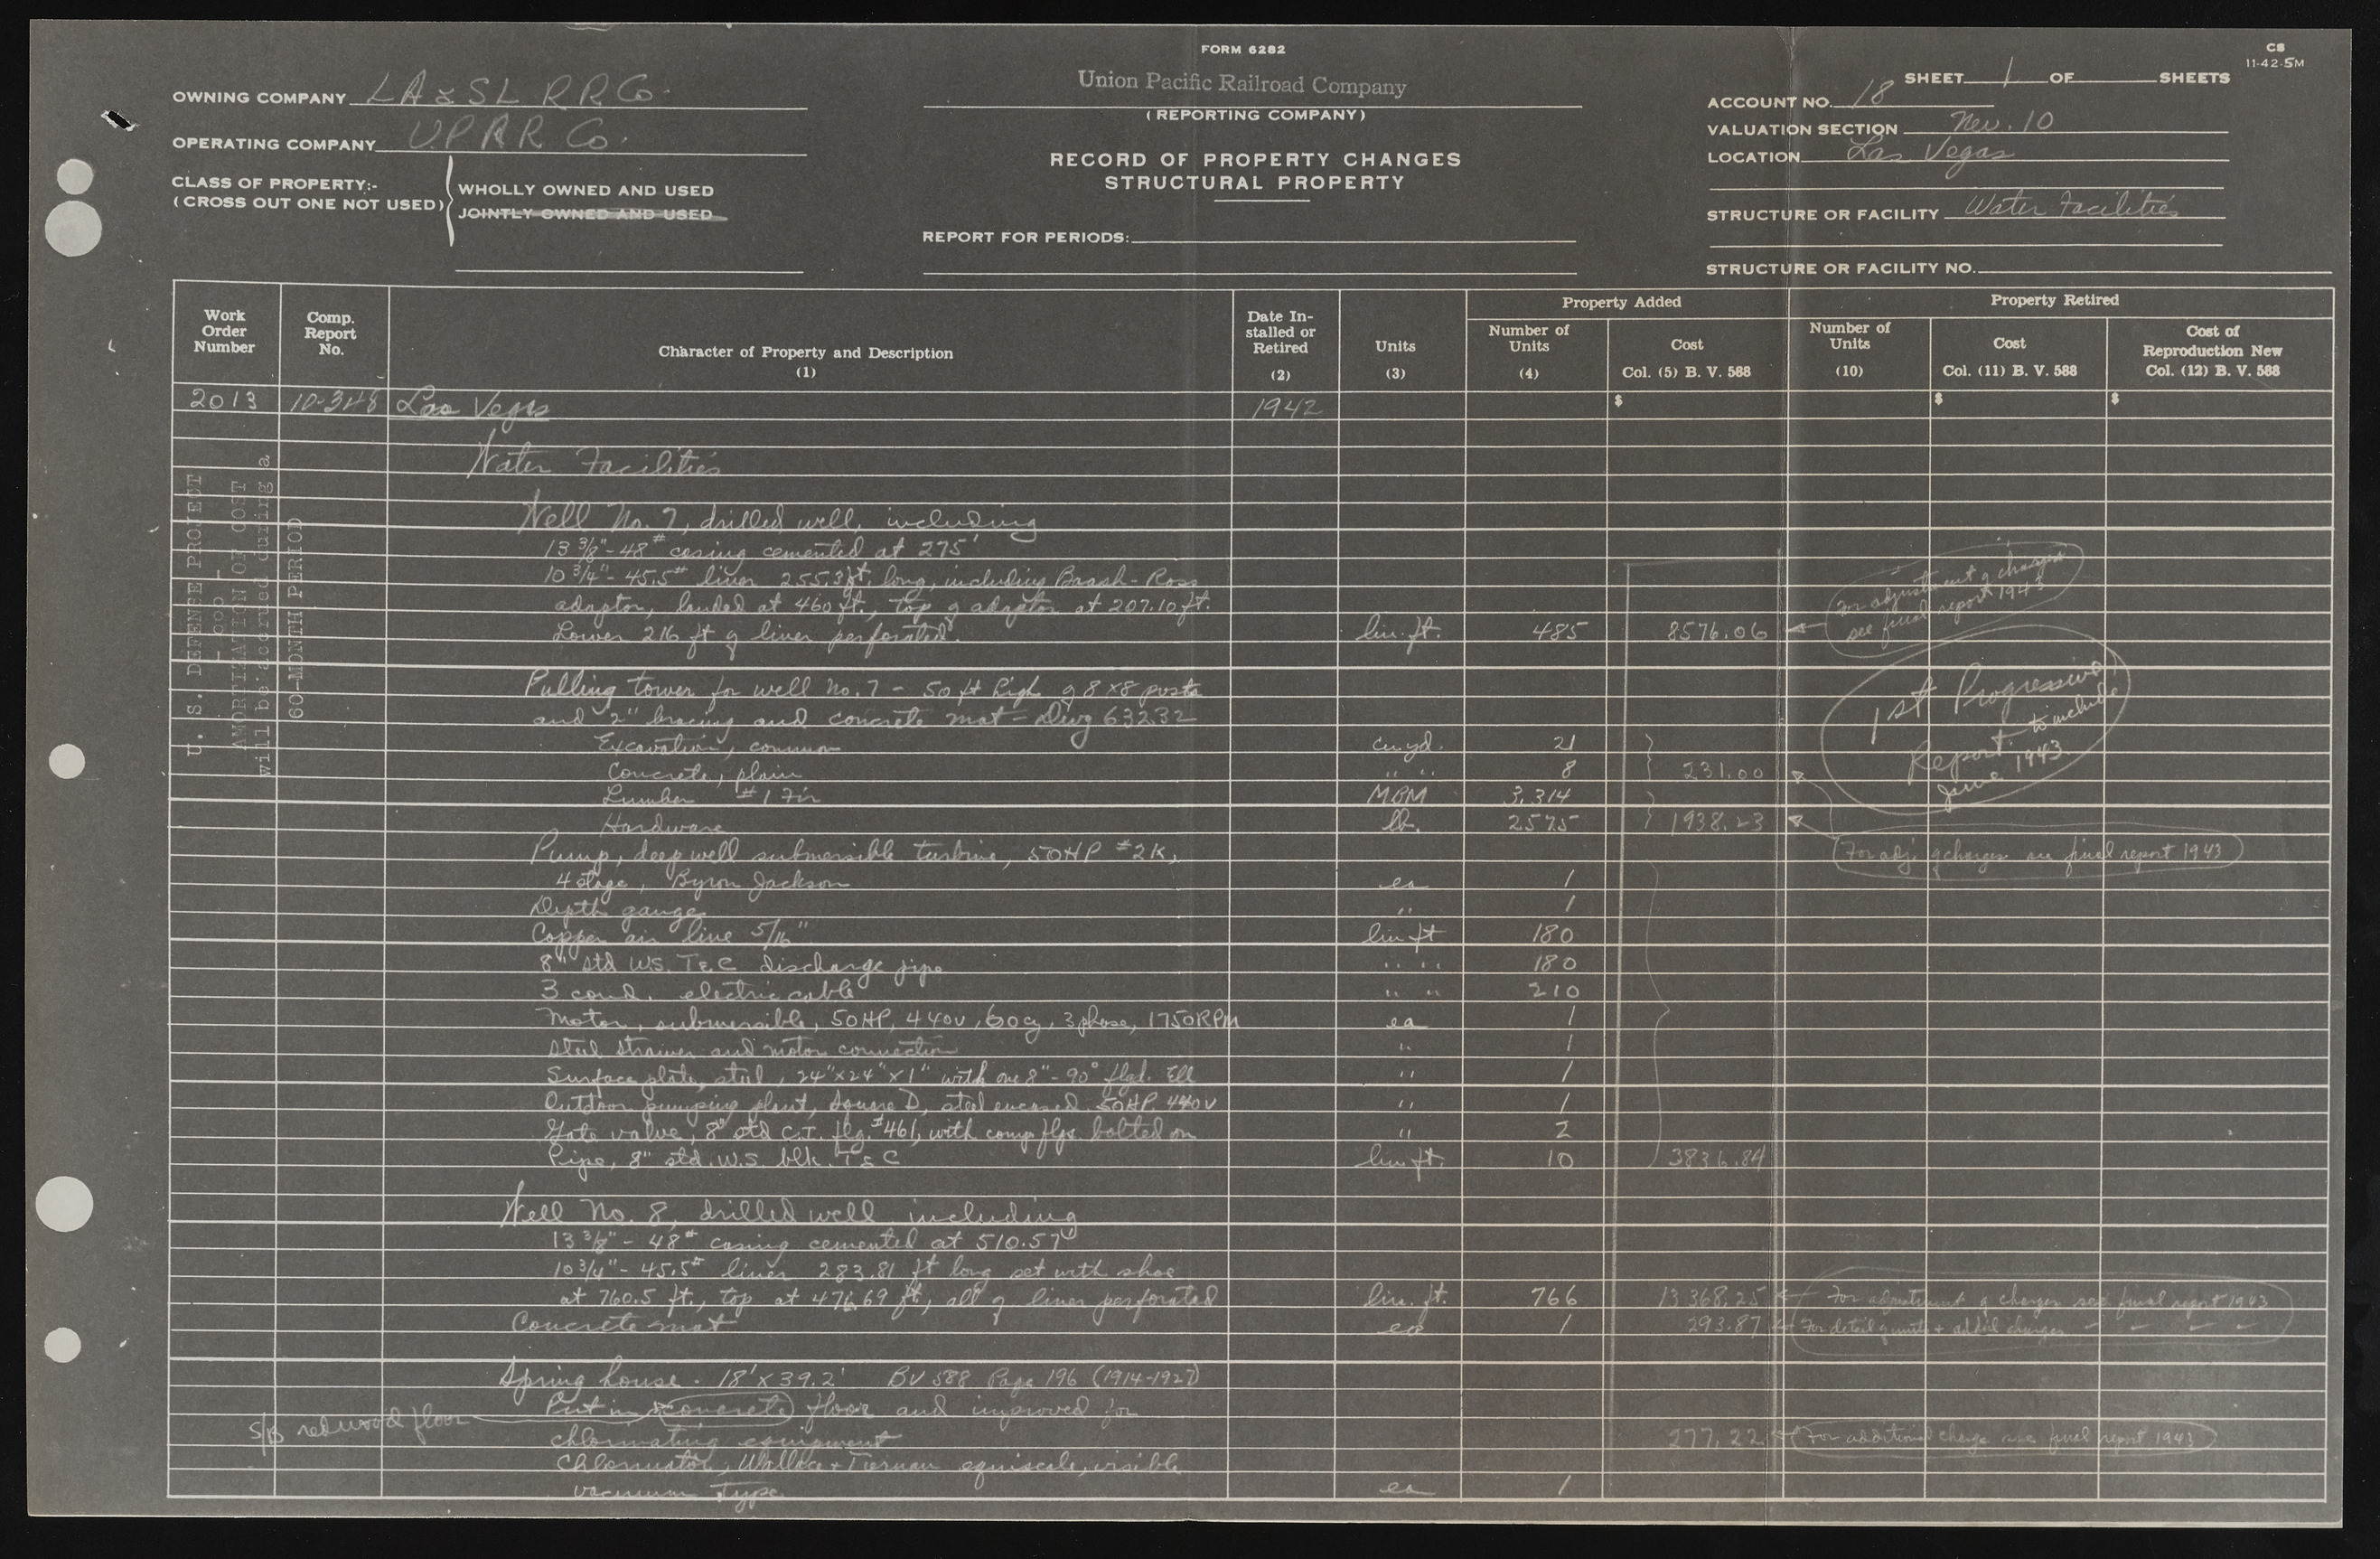 FORM 6282
CS
11-42-5M
OWNING COMPANY LA & SL RR Co.
Union Pacific Railroad Company
(REPORTING COMPANY)
SHEET 1 OF SHEETS
ACCOUNT NO. 18
OPERATING COMPANY U.P.R.R. Co.
VALUATION SECTION Nev. 10
LOCATION Las Vegas
CLASS OF PROPERTY:-
(CROSS OUT ONE NOT USED)
WHOLLY OWNED AND USED
JOINTLY OWNED AND USED
RECORD OF PROPERTY CHANGES
STRUCTURAL PROPERTY
STRUCTURE OR FACILITY Water Facilities
REPORT FOR PERIODS:
STRUCTURE OR FACILITY NO.
Work Order Number
Comp. Report No.
Character of Property and Description
(1)
Date Installed or Retired
(2)
Units
(3)
Property Added
Number of Units
(4)
Cost
Col. (5) B. V. 588
Property Retired
Number of Units
(10)
Cost
Col. (11) B. V. 588
Cost of Reproduction New
Col. (12) B. V. 588
2013 10-348 Las Vegas 1942 $ $ $
Water Facilities
U. S. DEFENSE PROJECT
- 000 -
AMORTIZATION OF COST
will be accrued during a
60-MONTH PERIOD
Well No. 7, drilled well, including
13 3/8" - 48# casing cemented at 275'
10 3/4" - 45.5# liner 255.3 ft. long, including Baash-Ross
adaptor, landed at 460 ft., top of adaptor at 207.10 ft.
Lower 216 ft of liner perforated. lin. ft. 485 8576.06
For adjustment of charges
see final report 1943
1st Progressive
Report to include
June 1943
Pulling tower for well No. 7 - 50 ft high of 8x8 posts
and 2" bracing and concrete mat - Dwg 63232
Excavation, common cu. yd. 21
Concrete, plain " " 8 231.00
Lumber #1 Fir MBM 3.314
Hardware lb. 2575 1938.23
For adj. of charges see final report 1943
Pump, deep well submersible turbine, 50HP #2K,
4 stage, Byron Jackson ea 1
Depth gauge " 1
Copper air line 5/16" lin ft 180
8" std W.S. T&C discharge pipe " " 180
3 cond. electric cable " " 210
Motor, submersible, 50HP, 440V, 60cy, 3 phase, 1750RPM ea 1
Steel strainer and motor connection " 1
Surface plate, steel, 24"x24"x1" with one 8" - 90° flgd. Ell " 1
Outdoor pumping plant, Square D, steel encased 50HP. 440V " 1
Gate valve, 8" std C.I. flg. #461, with comp flgs bolted on " 2
Pipe, 8" std. W.S. blk. T & C lin ft. 10 3836.84
Well No. 8, drilled well including
13 3/8" - 48# casing cemented at 510.57'
10 3/4" - 45.5# liner 283.81 ft long set with shoe
at 760.5 ft., top at 476.69 ft, all of liner perforated lin. ft. 766 13 368.25 For adjustment of charges see final report 1943
Concrete mat ea 1 293.87 For detail of units + added charges " " "
Spring house - 18' x 39.2' BV 588 Page 196 (1914-1927)
Put in concrete floor and improved for
S/B redwood floor
chlorinating equipment 277.22 For additional charge see final report 1943
Chlorinator, Wallace & Tiernan equiscale, visible
vacuum type ea 1